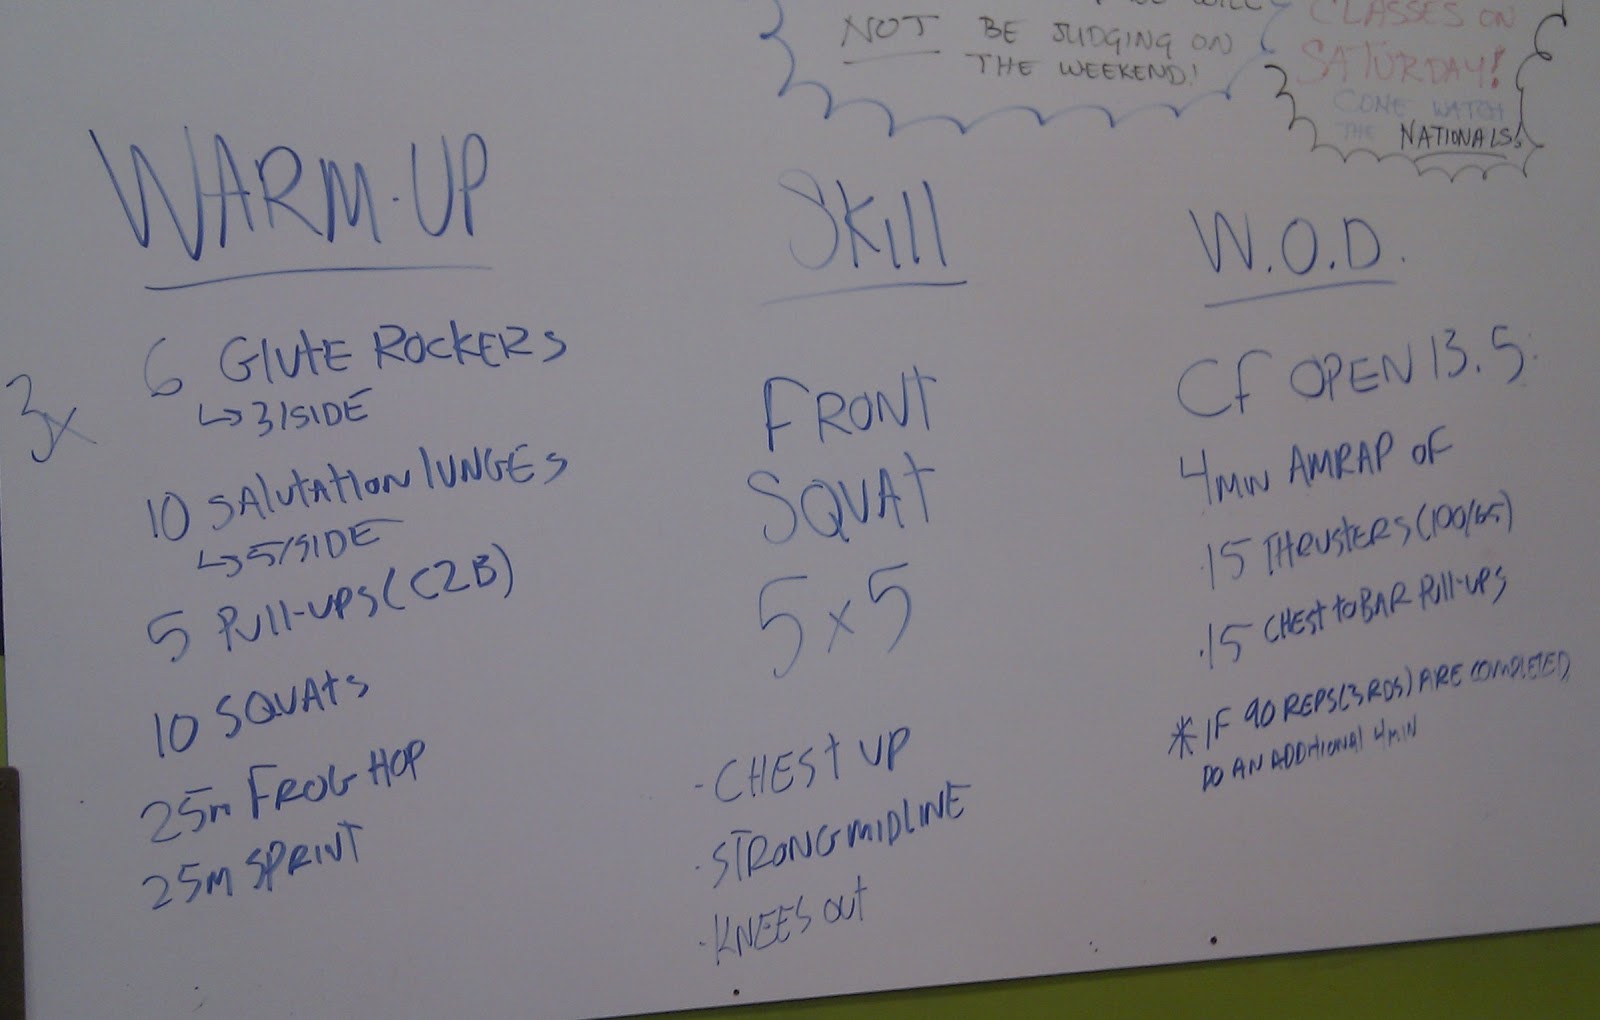 NOT BE JUDGING ON
THE WEEKEND!
CLASSES ON
SATURDAY!
COME WATCH
THE NATIONALS!
WARM-UP
3x
6 GlutE ROCKERS
↳3/SIDE
10 SAlutAtIoN lUNGES
↳5/SIDE
5 Pull-UPS (C2B)
10 SQUAtS
25m FROG HOP
25M SPRINT
Skill
FRONT
SQUAt
5 x 5
·CHESt UP
·STRONG MIDLINE
·KNEES OUt
W.O.D.
CF OPEN 13.5:
4MIN AMRAP OF
·15 THRUStERS (100/65)
·15 CHESt to BAR Pull-UPS
*IF 90 REPS (3 RDS) ARE COMPLETED,
DO AN ADDItIONAl 4MIN